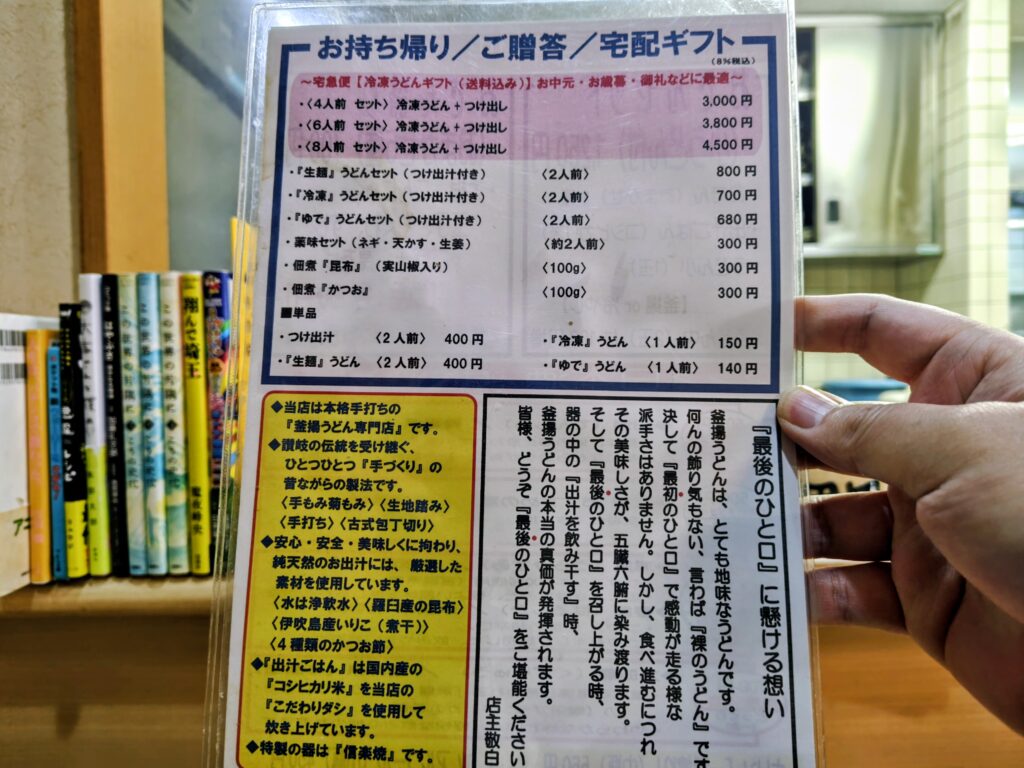 お持ち帰り／ご贈答／宅配ギフト
(8%税込)
～宅急便【冷凍うどんギフト（送料込み）】お中元・お歳暮・御礼などに最適～
・〈4人前 セット〉冷凍うどん + つけ出し 3,000円
・〈6人前 セット〉冷凍うどん + つけ出し 3,800円
・〈8人前 セット〉冷凍うどん + つけ出し 4,500円
・『生麺』うどんセット（つけ出汁付き） 〈2人前〉 800円
・『冷凍』うどんセット（つけ出汁付き） 〈2人前〉 700円
・『ゆで』うどんセット（つけ出汁付き） 〈2人前〉 680円
・薬味セット（ネギ・天かす・生姜） 〈約2人前〉 300円
・佃煮『昆布』（実山椒入り） 〈100g〉 300円
・佃煮『かつお』 〈100g〉 300円
■単品
・つけ出汁 〈2人前〉 400円 ・『冷凍』うどん 〈1人前〉 150円
・『生麺』うどん 〈2人前〉 400円 ・『ゆで』うどん 〈1人前〉 140円
◆当店は本格手打ちの
『釜揚うどん専門店』です。
◆讃岐の伝統を受け継ぐ、
ひとつひとつ『手づくり』の
昔ながらの製法です。
〈手もみ菊もみ〉〈生地踏み〉
〈手打ち〉〈古式包丁切り〉
◆安心・安全・美味しくに拘わり、
純天然のお出汁には、厳選した
素材を使用しています。
〈水は浄軟水〉〈羅臼産の昆布〉
〈伊吹島産いりこ（煮干）〉
〈4種類のかつお節〉
◆『出汁ごはん』は国内産の
『コシヒカリ米』を当店の
『こだわりダシ』を使用して
炊き上げています。
◆特製の器は『信楽焼』です。
『最後のひと口』に懸ける想い
釜揚うどんは、とても地味なうどんです。
何んの飾り気もない、言わば『裸のうどん』です
決して『最初のひと口』で感動が走る様な
派手さはありません。しかし、食べ進むにつれ
その美味しさが、五臓六腑に染み渡ります。
そして『最後のひと口』を召し上がる時、
器の中の『出汁を飲み干す』時、
釜揚うどんの本当の真価が発揮されます。
皆様、どうぞ『最後のひと口』をご堪能ください
店主敬白
翔んで埼玉
魔夜峰央
この世界の片隅に
この世界の片隅に